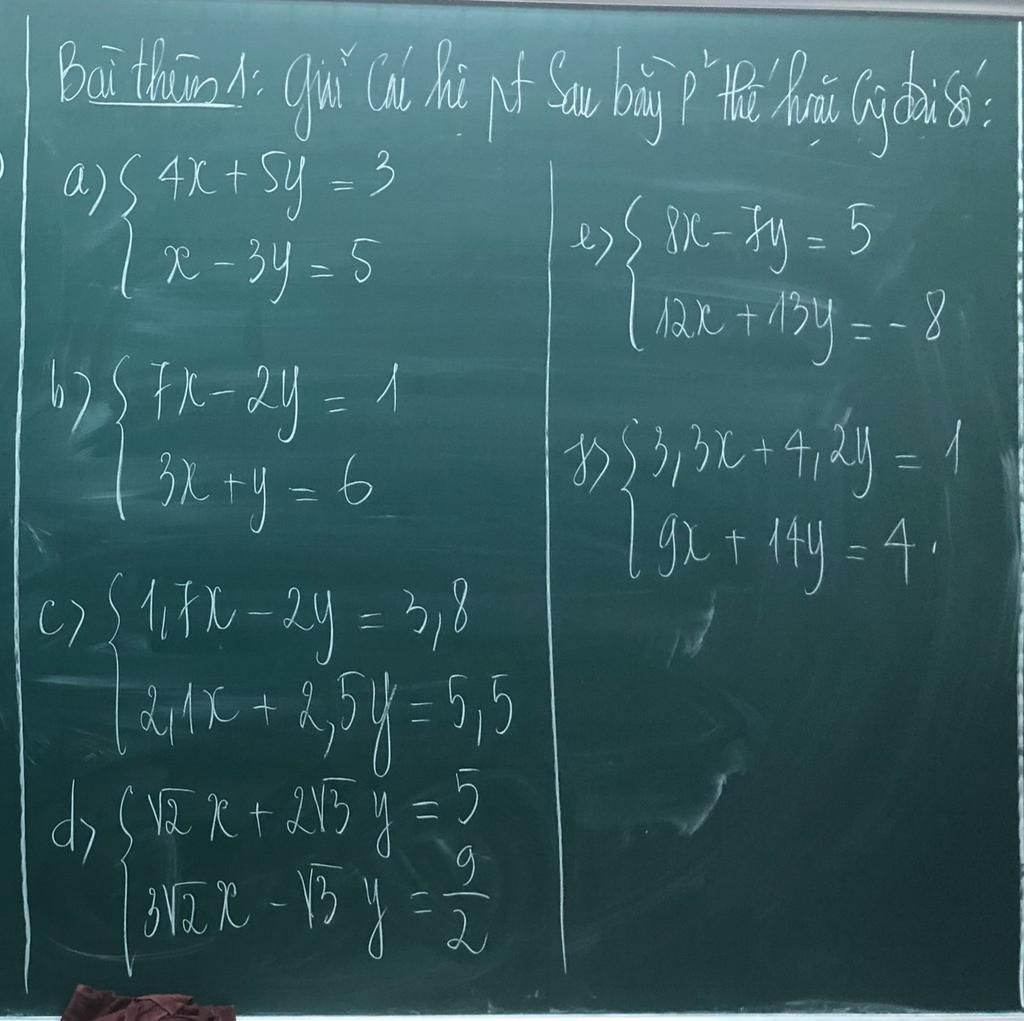 Bài thêm 1: Giải các hệ pt sau bằng p² thế hoặc cộng đại số:
a) { 4x + 5y = 3
x - 3y = 5
b) { 7x - 2y = 1
3x + y = 6
c) { 1,7x - 2y = 3,8
2,1x + 2,5y = 5,5
d) { √2 x + 2√3 y = 5
3√2 x - √3 y = 9/2
e) { 8x - 7y = 5
12x + 13y = - 8
f) { 3,3x + 4,2y = 1
9x + 14y = 4.